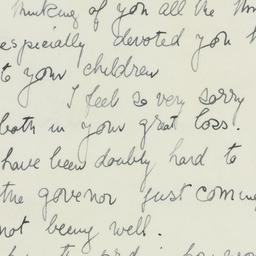 thinking of you all the
especially devoted you
to your children
I feel so very sorry
both in your great loss.
have been doubly hard to
the govenor just coming
not being well.